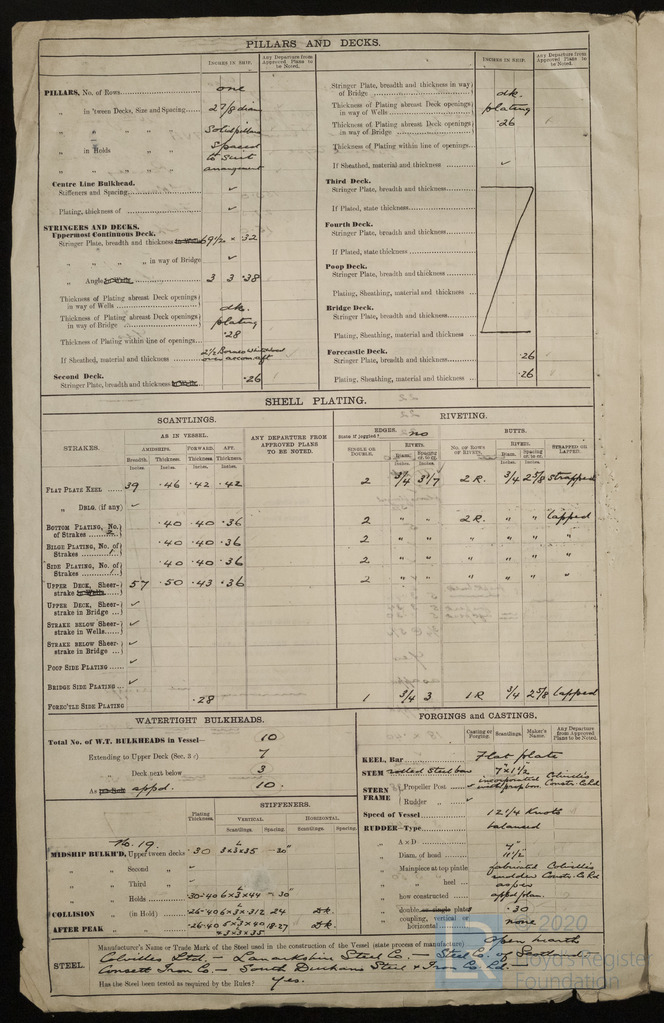 PILLARS AND DECKS.
INCHES IN SHIP.
Any Departure from Approved Plans to be Noted.
PILLARS, No. of Rows one
„ in 'tween Decks, Size and Spacing 2 7/8 dia
„ „ „ „ Solid pillars
„ in Holds „ „ Spaced
to suit
„ „ „ „ arrangement
Centre Line Bulkhead.
Stiffeners and Spacing ✓
Plating, thickness of ✓
STRINGERS AND DECKS.
Uppermost Continuous Deck.
Stringer Plate, breadth and thickness in Wells 69 1/2 × .32
„ „ „ „ in way of Bridge ✓
„ Angle in Wells 3 3 .38
Thickness of Plating abreast Deck openings in way of Wells dk.
Thickness of Plating abreast Deck openings in way of Bridge plating
Thickness of Plating within line of openings .28
If Sheathed, material and thickness 2 1/2 Borneo
over accom aft
Second Deck.
Stringer Plate, breadth and thickness in Wells .26
INCHES IN SHIP.
Any Departure from Approved Plans to be Noted.
Stringer Plate, breadth and thickness in way of Bridge dk.
Thickness of Plating abreast Deck openings in way of Wells plating
Thickness of Plating abreast Deck openings in way of Bridge .26
Thickness of Plating within line of openings
If Sheathed, material and thickness ✓
Third Deck.
Stringer Plate, breadth and thickness
If Plated, state thickness
Fourth Deck.
Stringer Plate, breadth and thickness
If Plated, state thickness
Poop Deck.
Stringer Plate, breadth and thickness
Plating, Sheathing, material and thickness
Bridge Deck.
Stringer Plate, breadth and thickness
Plating, Sheathing, material and thickness
Forecastle Deck.
Stringer Plate, breadth and thickness .26
Plating, Sheathing, material and thickness .26
SHELL PLATING.
SCANTLINGS.
RIVETING.
STRAKES.
AS IN VESSEL.
AMIDSHIPS. FORWARD. AFT.
Breadth. Thickness. Thickness. Thickness.
Inches. Inches. Inches. Inches.
ANY DEPARTURE FROM APPROVED PLANS TO BE NOTED.
EDGES.
State if joggled? no
SINGLE OR DOUBLE.
RIVETS.
Diam. Spacing cr. to cr.
Inches. Inches.
BUTTS.
NO. OF ROWS OF RIVETS.
RIVETS.
Diam. Spacing cr. to cr.
STRAPPED OR LAPPED.
FLAT PLATE KEEL 39 .46 .42 .42 2 3/4 3 1/7 2 R. 3/4 2 5/8 Strapped
„ DBLG. (if any) ✓
BOTTOM PLATING, No. of Strakes .40 .40 .36 2 „ „ 2 R. „ „ lapped
BILGE PLATING, No. of Strakes .40 .40 .36 2 „ „ „ „ „
SIDE PLATING, No. of Strakes .40 .40 .36 2 „ „ „ „ „
UPPER DECK, Sheerstrake in Wells 57 .50 .43 .36 2 „ „ „ „ „
UPPER DECK, Sheerstrake in Bridge ✓
STRAKE BELOW Sheerstrake in Wells ✓
STRAKE BELOW Sheerstrake in Bridge ✓
POOP SIDE PLATING ✓
BRIDGE SIDE PLATING ✓
FOREC'TLE SIDE PLATING .28 1 3/4 3 1 R 3/4 2 5/8 lapped
WATERTIGHT BULKHEADS.
Total No. of W.T. BULKHEADS in Vessel— 10
Extending to Upper Deck (Sec. 3 c) 7
„ Deck next below 3
As per Rule appd. 10.
Plating Thickness.
STIFFENERS.
VERTICAL. HORIZONTAL.
Scantlings. Spacing. Scantlings. Spacing.
No. 19.
MIDSHIP BULKH'D, Upper 'tween decks .30 3 × 3 × .35 – 30"
„ „ Second „ ✓
„ „ Third „ ✓
„ „ Holds .30-.40 6 × 3 × .44 – 30"
COLLISION „ (in Hold) .26-.40 6 × 3 × .312 24 Dk.
AFTER PEAK „ „ .26-.40 5 × 3 × .40 18-27 Dk.
+ 3 × 3 × .35
FORGINGS and CASTINGS.
Casting or Forging. Scantlings. Maker's Name. Any Departure from Approved Plans to be Noted.
KEEL, Bar Flat plate
STEM rolled Steel bar 7" × 1 1/2
STERN FRAME { Propeller Post ✓ incorporated with prop box. Colvilles Constr. Co Ld
Rudder „ ✓
Speed of Vessel 12 1/4 Knots
RUDDER—Type balanced
„ A x D 4"
„ Diam. of head 11 1/2
„ Mainpiece at top pintle fabricated Colvilles
„ „ heel rudder Constr. Co Ld
„ how constructed as per appd plan.
„ double or single plates .30
„ coupling, vertical or horizontal none
STEEL.
Manufacturer's Name or Trade Mark of the Steel used in the construction of the Vessel (state process of manufacture) Open hearth
Colvilles Ltd. – Lanarkshire Steel Co. – Steel Co. of Scotland
Consett Iron Co – South Durham Steel & Iron Co. Ld.
Has the Steel been tested as required by the Rules? Yes.
LR
© 2020
Lloyd's Register
Foundation